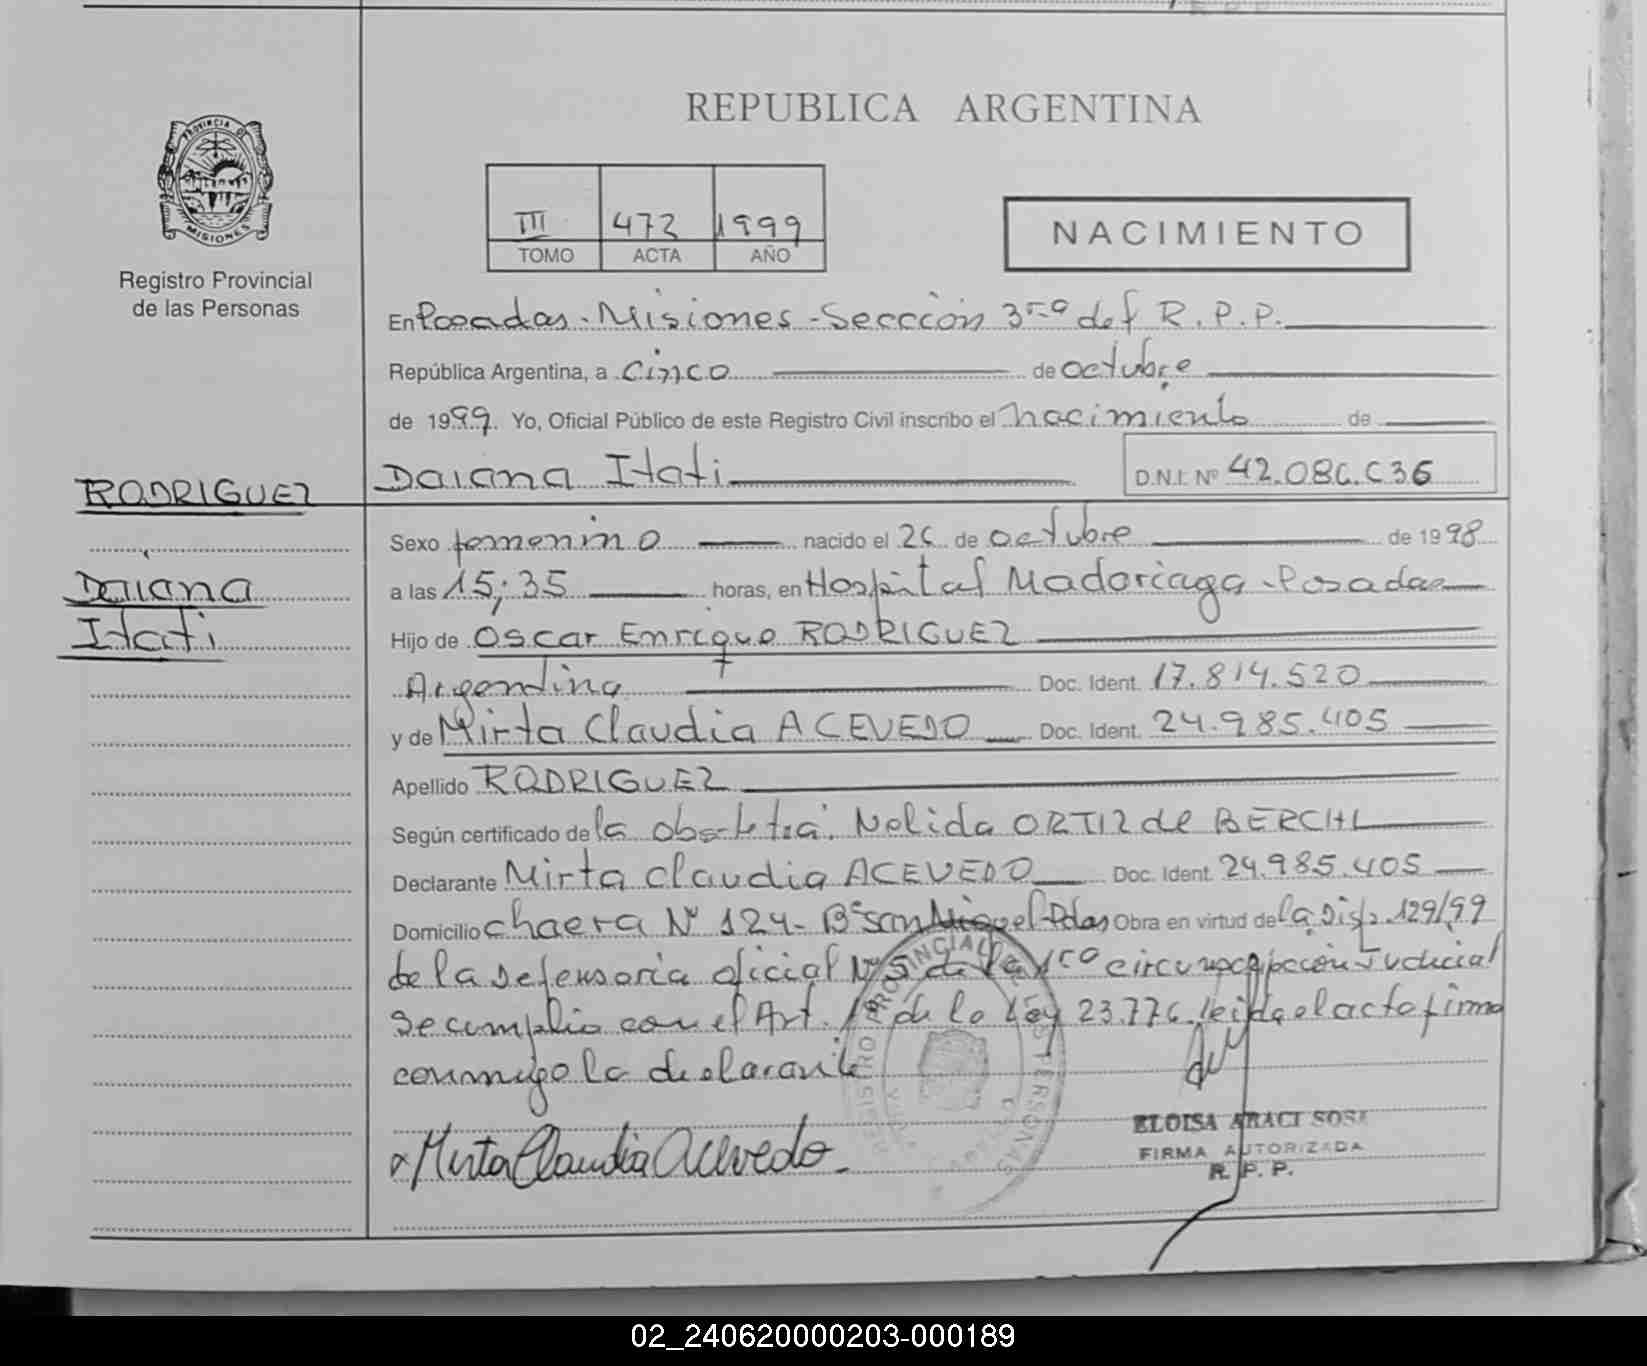 REPUBLICA ARGENTINA
PROVINCIA DE
MISIONES
Registro Provincial
de las Personas
III 472 1999
TOMO ACTA AÑO
NACIMIENTO
En Posadas - Misiones - Sección 3ra del R. P. P.
República Argentina, a cinco de octubre
de 1999. Yo, Oficial Público de este Registro Civil inscribo el nacimiento de
RODRIGUEZ
Daiana Itati
Daiana Itati D.N.I. Nº 42.086.036
Sexo femenino nacido el 26 de octubre de 1998
a las 15;35 horas, en Hospital Madariaga - Posadas
Hijo de Oscar Enrique RODRIGUEZ
Argentina Doc. Ident. 17.814.520
y de Mirta Claudia ACEVEDO Doc. Ident. 24.985.405
Apellido RODRIGUEZ
Según certificado de la obstetra. Nelida ORTIZ de
Declarante Mirta Claudia ACEVEDO Doc. Ident. 24.985.405
Domicilio chacra Nº 124 - Bº San Miguel - Pdas Obra en virtud de la Disp. 129/99
de la Defensoria oficial Nº 5 de la 1ra circunscripción Judicial
Se cumplio con el Art. de la Ley 23.776. leida el acta firma
conmigo la declarante
Mirta Claudia Acevedo
REGISTRO PROVINCIAL DE LAS PERSONAS
ELOISA ARACI SOSA
FIRMA AUTORIZADA
R. P. P.
02_240620000203-000189